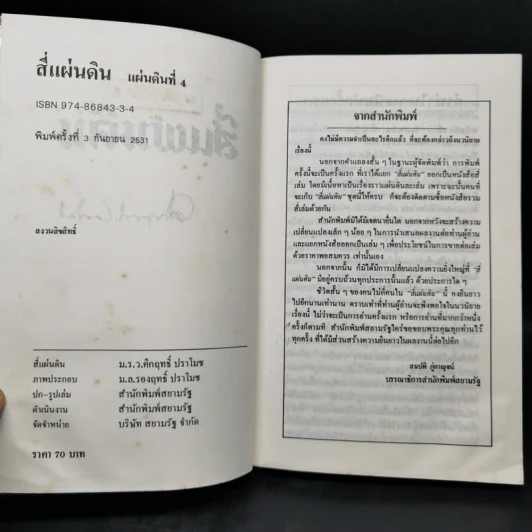 สี่แผ่นดิน แผ่นดินที่ 4
ISBN 974-86843-3-4
พิมพ์ครั้งที่ 3 กันยายน 2531
สงวนลิขสิทธิ์
สี่แผ่นดิน ม.ร.ว.คึกฤทธิ์ ปราโมช
ภาพประกอบ ม.ล.รองฤทธิ์ ปราโมช
ปก-รูปเล่ม สำนักพิมพ์สยามรัฐ
ดำเนินงาน สำนักพิมพ์สยามรัฐ
จัดจำหน่าย บริษัท สยามรัฐ จำกัด
ราคา 70 บาท
จากสำนักพิมพ์
คงไม่มีความจำเป็นอะไรอีกแล้ว ที่จะต้องกล่าวถึงนวนิยาย
เรื่องนี้
นอกจากคำแถลงสั้น ๆ ในฐานะผู้จัดพิมพ์ว่า การพิมพ์
ครั้งนี้จะเป็นครั้งแรก ที่เราได้แยก "สี่แผ่นดิน" ออกเป็นหนังสือสี่
เล่ม โดยมีเนื้อหาเป็นเรื่องราวแผ่นดินละเล่ม เพราะฉะนั้นคนที่
จะเก็บ "สี่แผ่นดิน" ชุดนี้ให้ครบ ก็จะต้องติดตามซื้อหนังสือรวม
สี่เล่มด้วยกัน
สำนักพิมพ์มิได้มีเจตนาอื่นใด นอกจากหวังจะสร้างความ
เปลี่ยนแปลงเล็ก ๆ น้อย ๆ ในการนำเสนอผลงานต่อท่านผู้อ่าน
และแยกหนังสือออกเป็นเล่ม ๆ เพื่อประโยชน์ในการขายต่อเล่ม
ด้วยราคาพอสมควร เท่านั้นเอง
นอกจากนั้น ก็มิได้มีการเปลี่ยนแปลงความยิ่งใหญ่ที่ "สี่
แผ่นดิน" มีอยู่ครบถ้วนทุกประการนั้นแล้ว ด้วยประการใด ๆ
ชีวิตสั้น ๆ ของคนไม่กี่คนใน "สี่แผ่นดิน" นี้ คงยืนยาว
ไปอีกนานเท่านาน ตราบเท่าที่ท่านผู้อ่านจะพึงพอใจในนวนิยาย
เรื่องนี้ ไม่ว่าจะเป็นการอ่านครั้งแรก หรือการอ่านที่มากกว่าหนึ่ง
ครั้งก็ตามที สำนักพิมพ์สยามรัฐใคร่ขอขอบพระคุณทุกท่านไว้
ทุกครั้ง ที่ได้มีส่วนสร้างความยืนยาวในผลงานนี้ต่อไปอีก
สมบัติ ภู่กาญจน์
บรรณาธิการสำนักพิมพ์สยามรัฐ